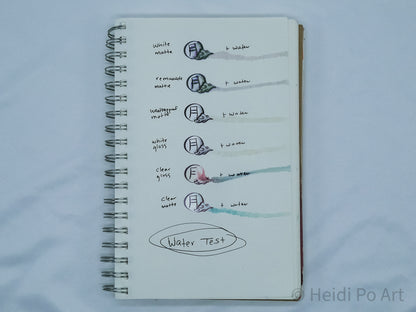 White matte + water
removable matte + water
Weatherproof matte + water
White gloss + water
Clear gloss + water
Clear matte + water
Water Test
© Heidi Po Art